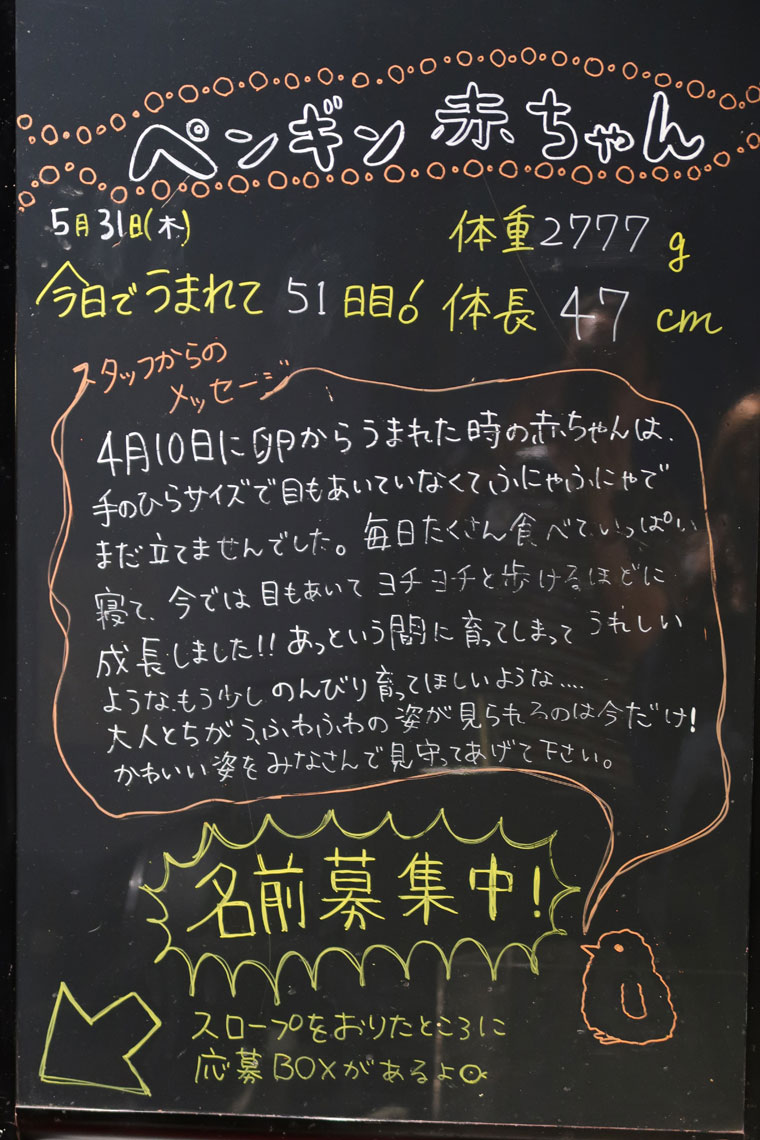 ペンギン赤ちゃん
5月31日(木)
体重2777g
今日でうまれて51日目!
体長47cm
スタッフからの
メッセージ
4月10日に卵からうまれた時の赤ちゃんは、
手のひらサイズで目もあいていなくてふにゃふにゃで
まだ立てませんでした。毎日たくさん食べていっぱい
寝て、今では目もあいてヨチヨチと歩けるほどに
成長しました!!あっという間に育ってしまってうれしい
ような、もう少しのんびり育ってほしいような....
大人とちがう、ふわふわの姿が見られるのは今だけ!
かわいい姿をみなさんで見守ってあげて下さい。
名前募集中!
スロープをおりたところに
応募BOXがあるよ